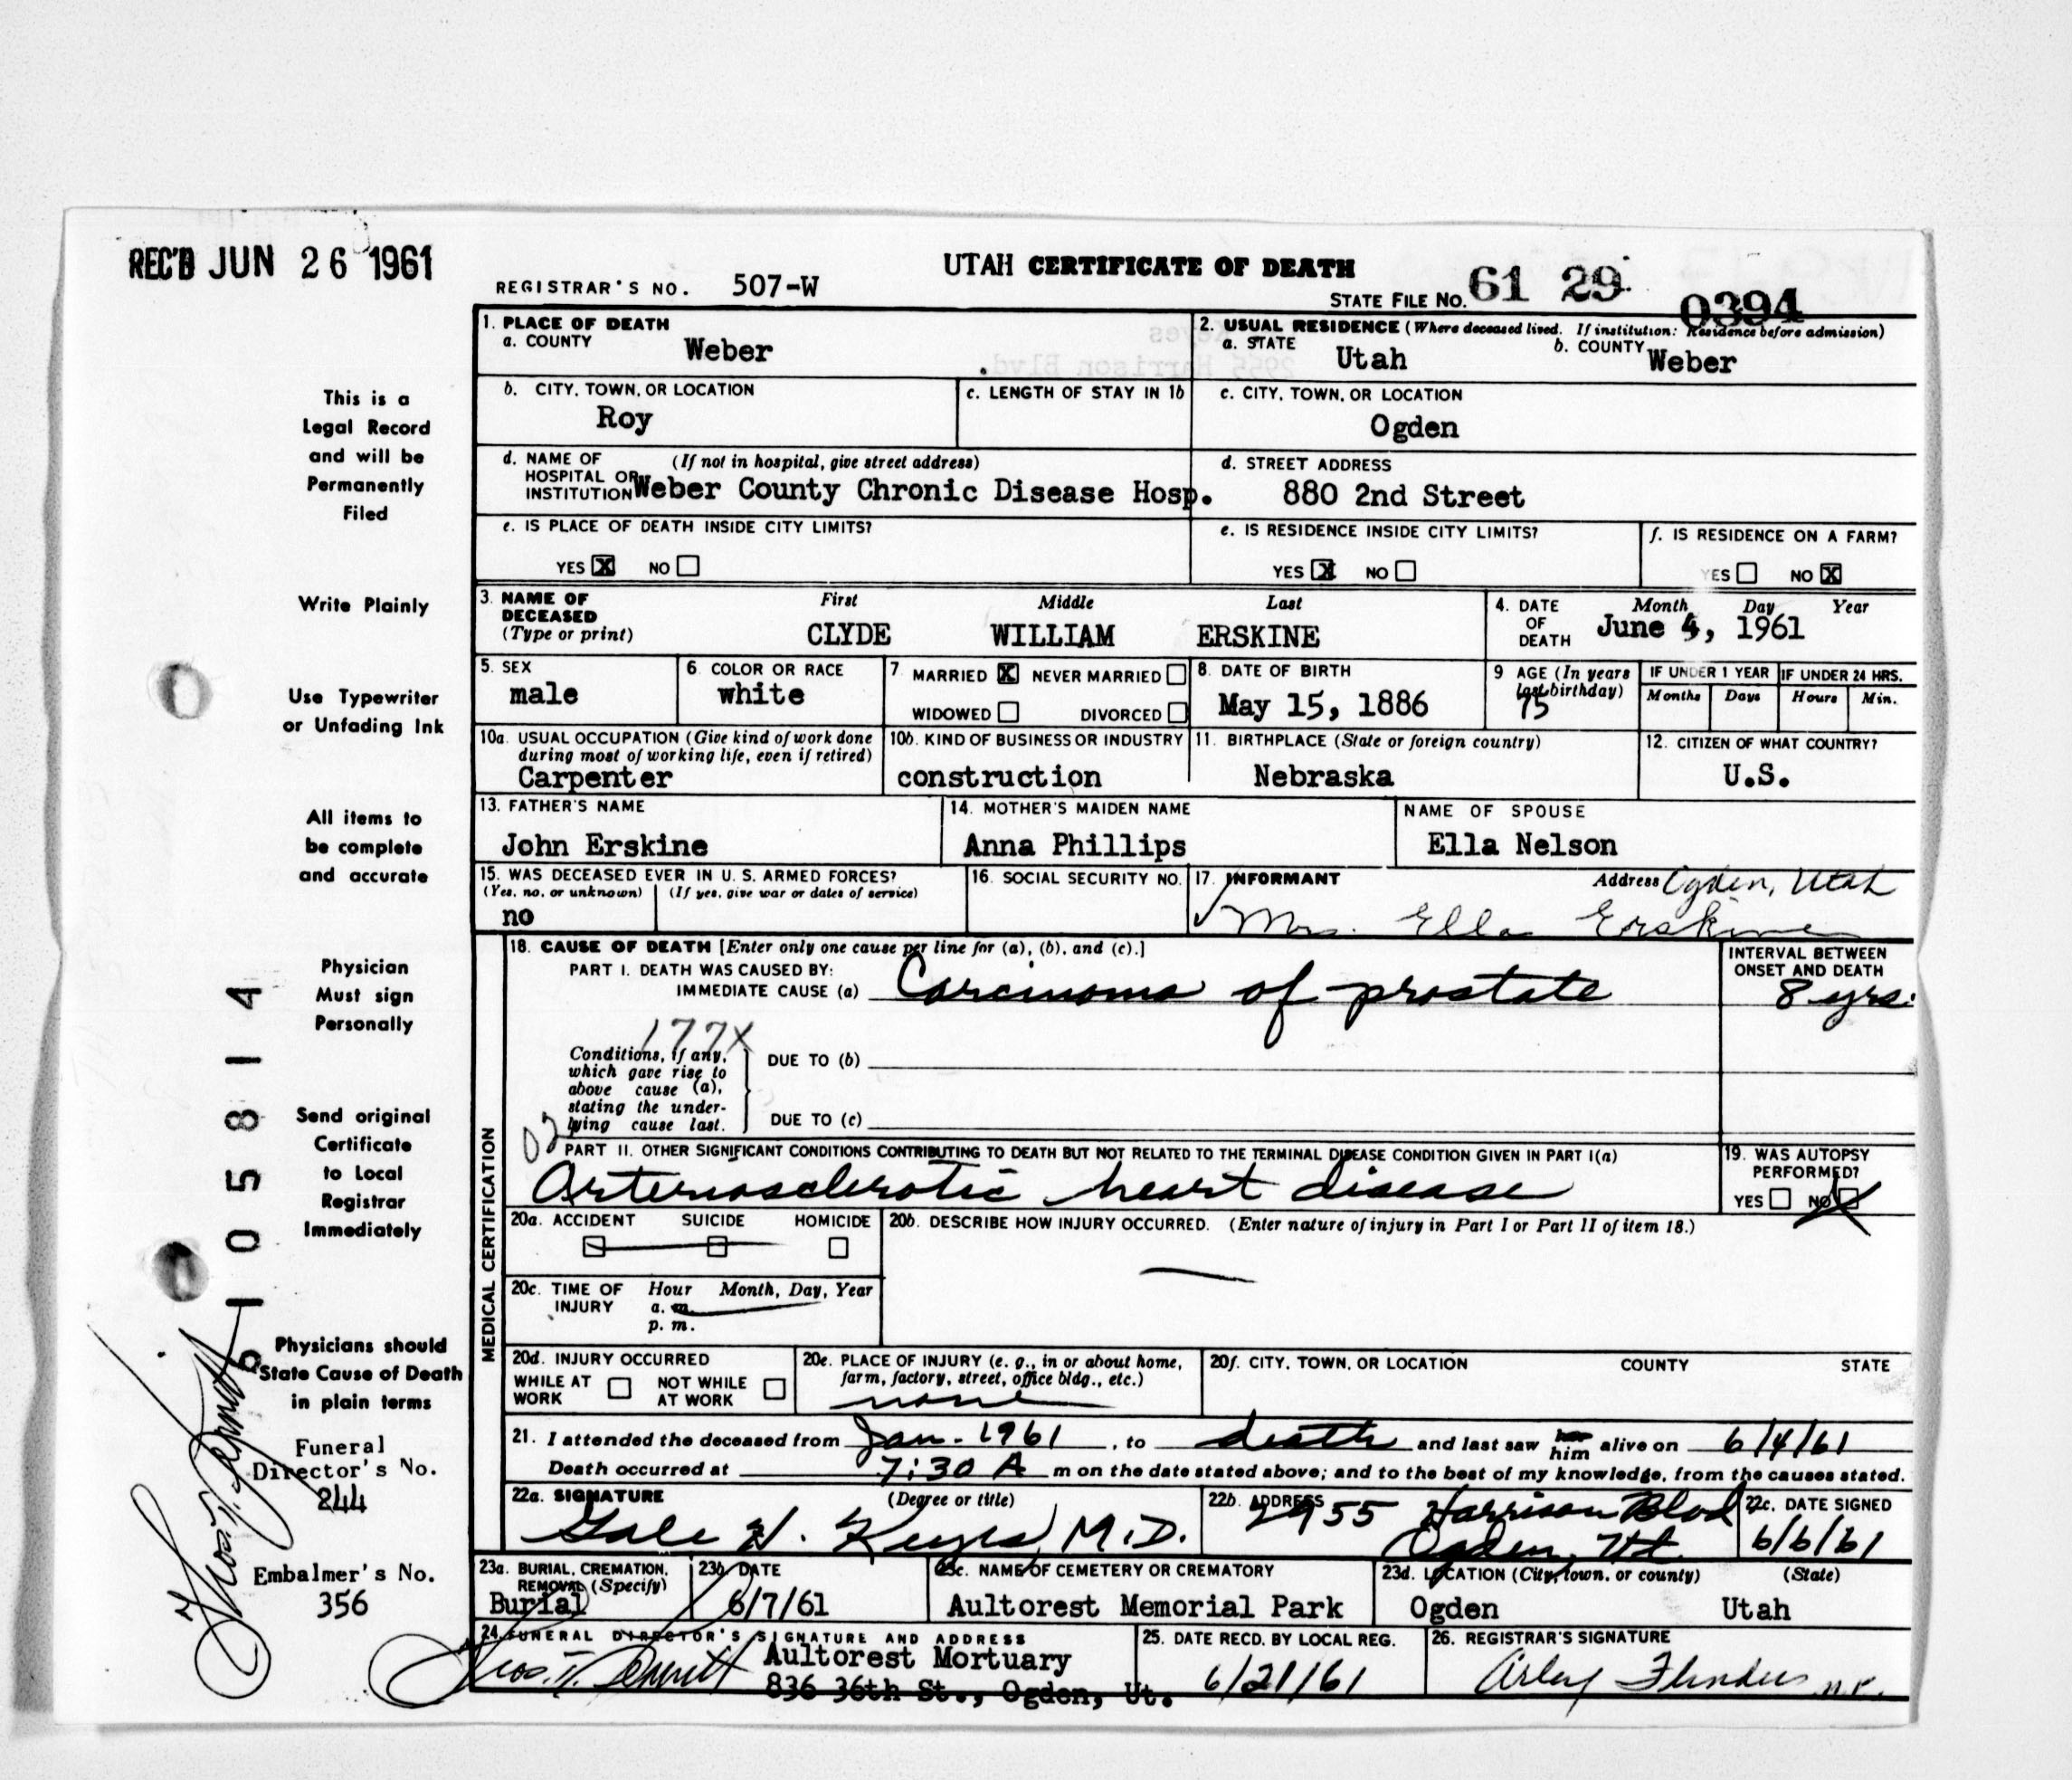 REC'D JUN 26 1961
UTAH CERTIFICATE OF DEATH
REGISTRAR'S NO. 507-W
STATE FILE No. 61 29 0394
This is a
Legal Record
and will be
Permanently
Filed
Write Plainly
Use Typewriter
or Unfading Ink
All items to
be complete
and accurate
Physician
Must sign
Personally
Send original
Certificate
to Local
Registrar
Immediately
Physicians should
State Cause of Death
in plain terms
Funeral
Director's No.
244
Embalmer's No.
356
5105814
1. PLACE OF DEATH
a. COUNTY Weber
2. USUAL RESIDENCE (Where deceased lived. If institution: Residence before admission)
a. STATE Utah b. COUNTY Weber
b. CITY, TOWN, OR LOCATION Roy
c. LENGTH OF STAY IN 1b
c. CITY, TOWN, OR LOCATION Ogden
d. NAME OF (If not in hospital, give street address)
HOSPITAL OR
INSTITUTION Weber County Chronic Disease Hosp.
d. STREET ADDRESS 880 2nd Street
e. IS PLACE OF DEATH INSIDE CITY LIMITS?
YES X NO
e. IS RESIDENCE INSIDE CITY LIMITS?
YES X NO
f. IS RESIDENCE ON A FARM?
YES NO X
3. NAME OF DECEASED (Type or print)
First Middle Last
CLYDE WILLIAM ERSKINE
4. DATE OF DEATH Month Day Year
June 4, 1961
5. SEX male
6. COLOR OR RACE white
7. MARRIED X NEVER MARRIED
WIDOWED DIVORCED
8. DATE OF BIRTH May 15, 1886
9 AGE (In years last birthday) 75
IF UNDER 1 YEAR Months Days
IF UNDER 24 HRS. Hours Min.
10a. USUAL OCCUPATION (Give kind of work done
during most of working life, even if retired)
Carpenter
10b. KIND OF BUSINESS OR INDUSTRY
construction
11. BIRTHPLACE (State or foreign country)
Nebraska
12. CITIZEN OF WHAT COUNTRY?
U.S.
13. FATHER'S NAME
John Erskine
14. MOTHER'S MAIDEN NAME
Anna Phillips
NAME OF SPOUSE
Ella Nelson
15. WAS DECEASED EVER IN U. S. ARMED FORCES?
(Yes, no, or unknown) (If yes, give war or dates of service)
no
16. SOCIAL SECURITY NO.
17. INFORMANT Address Ogden, Utah
Mrs. Ella Erskine
MEDICAL CERTIFICATION
18. CAUSE OF DEATH [Enter only one cause per line for (a), (b), and (c).]
PART I. DEATH WAS CAUSED BY:
IMMEDIATE CAUSE (a) Carcinoma of prostate
INTERVAL BETWEEN
ONSET AND DEATH
8 yrs.
177X
Conditions, if any,
which gave rise to
above cause (a),
stating the under-
lying cause last.
DUE TO (b)
DUE TO (c)
02
PART II. OTHER SIGNIFICANT CONDITIONS CONTRIBUTING TO DEATH BUT NOT RELATED TO THE TERMINAL DISEASE CONDITION GIVEN IN PART I(a)
Arteriosclerotic heart disease
19. WAS AUTOPSY
PERFORMED?
YES NO X
20a. ACCIDENT SUICIDE HOMICIDE
20b. DESCRIBE HOW INJURY OCCURRED. (Enter nature of injury in Part I or Part II of item 18.)
20c. TIME OF INJURY Hour Month, Day, Year
a. m.
p. m.
20d. INJURY OCCURRED
WHILE AT WORK NOT WHILE AT WORK
20e. PLACE OF INJURY (e. g., in or about home,
farm, factory, street, office bldg., etc.)
none
20f. CITY, TOWN, OR LOCATION COUNTY STATE
21. I attended the deceased from Jan. 1961, to death and last saw her him alive on 6/4/61
Death occurred at 7:30 A m on the date stated above; and to the best of my knowledge, from the causes stated.
22a. SIGNATURE (Degree or title)
Gale H. Keyes M.D.
22b. ADDRESS 2955 Harrison Blvd
Ogden, Ut.
22c. DATE SIGNED
6/6/61
23a. BURIAL, CREMATION,
REMOVAL (Specify)
Burial
23b. DATE
6/7/61
23c. NAME OF CEMETERY OR CREMATORY
Aultorest Memorial Park
23d. LOCATION (City, town, or county) (State)
Ogden Utah
24. FUNERAL DIRECTOR'S SIGNATURE AND ADDRESS
Aultorest Mortuary
836 36th St., Ogden, Ut.
25. DATE RECD. BY LOCAL REG.
6/21/61
26. REGISTRAR'S SIGNATURE